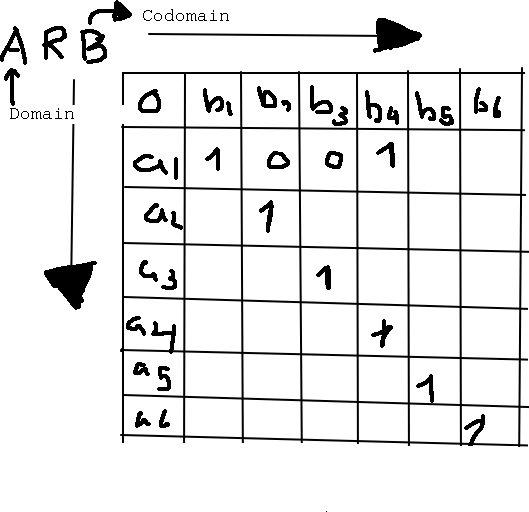 Codomain
A R B
Domain
0 b1 b2 b3 b4 b5 b6
a1 1 0 0 1
a2 1
a3 1
a4 1
a5 1
a6 1